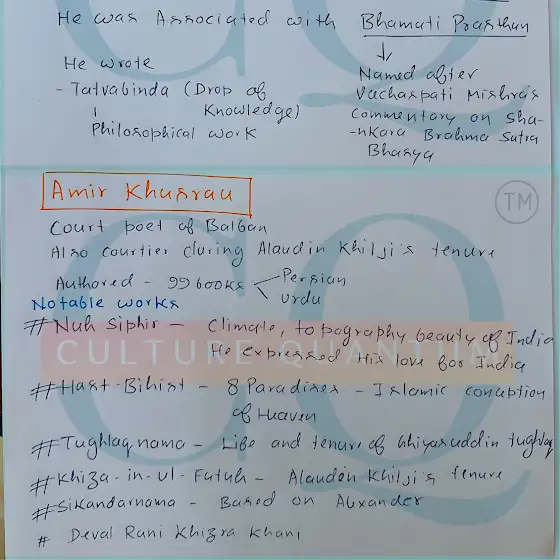 He was Associated with Bhamati Prasthan
He wrote
- Tatvabinda (Drop of Knowledge)
Philosophical work
Named after
Vachaspati Mishra's
Commentary on Sha-
-nkara Brahma Sutra
Bhasya
Amir Khusrau
TM
Court poet of Balban
Also courtier during Alaudin Khilji's tenure
Authored - 99 books
Persian
Urdu
Notable works
# Nuh Siphir - Climate, topography beauty of India
He expressed His love for India
CULTURE QUANTUM
# Hast-Bihist - 8 Paradises - Islamic conception
of Heaven
# Tughlaq nama - Life and tenure of Ghiyasuddin tughlaq
# Khiza-in-ul-Futuh - Alauden Khilji's tenure
# Sikandarnama - Based on Alexander
# Deval Rani Khizra Khani